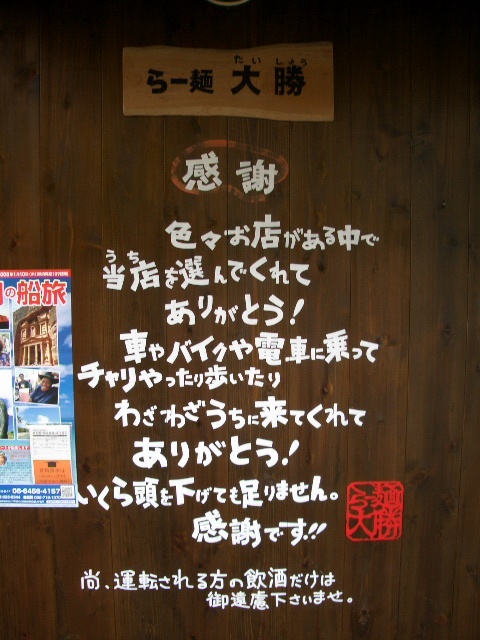 たいしょう
らー麺 大勝
感謝
色々なお店がある中で
うち
当店を選んでくれて
ありがとう!
車やバイクや電車に乗って
チャリやったり歩いたり
わざわざうちに来てくれて
ありがとう!
いくら頭を下げても足りません。
感謝です!!
らー麺大勝
尚、運転される方の飲酒だけは
御遠慮下さいませ。
の船旅
06-6456-4157